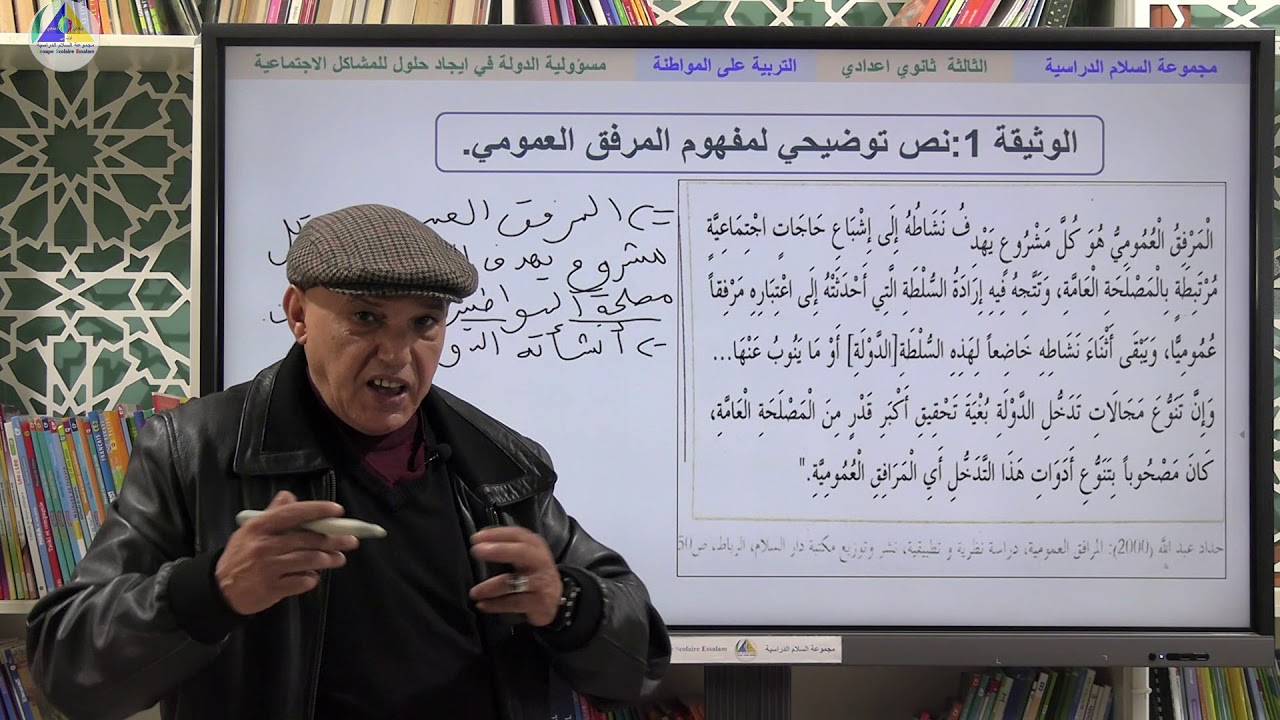 مجموعة السلام الدراسية
Groupe Scolaire Essalam
مجموعة السلام الدراسية
الثالثة ثانوي اعدادي
التربية على المواطنة
مسؤولية الدولة في ايجاد حلول للمشاكل الاجتماعية
الوثيقة 1:نص توضيحي لمفهوم المرفق العمومي.
الْمَرْفِقُ الْعُمُومِيُّ هُوَ كُلُّ مَشْرُوعٍ يَهْدِفُ نَشَاطُهُ إِلَى إِشْبَاعِ حَاجَاتٍ اجْتِمَاعِيَّةٍ
مُرْتَبِطَةٍ بِالْمَصْلَحَةِ الْعَامَّةِ، وَتَتَّجِهُ فِيهِ إِرَادَةُ السُّلْطَةِ الَّتِي أَحْدَثَتْهُ إِلَى اعْتِبَارِهِ مَرْفِقاً
عُمُومِيًّا، وَيَبْقَى أَثْنَاءَ نَشَاطِهِ خَاضِعاً لِهَذِهِ السُّلْطَةِ[الدَّوْلَةِ] أَوْ مَا يَنُوبُ عَنْهَا...
وَإِنَّ تَنَوُّعَ مَجَالاَتِ تَدَخُّلِ الدَّوْلَةِ بُغْيَةَ تَحْقِيقِ أَكْبَرِ قَدْرٍ مِنَ الْمَصْلَحَةِ الْعَامَّةِ،
كَانَ مَصْحُوباً بِتَنَوُّعِ أَدَوَاتِ هَذَا التَّدَخُّلِ أَيِ الْمَرَافِقِ الْعُمُومِيَّةِ."
حداد عبد الله (2000): المرافق العمومية، دراسة نظرية و تطبيقية، نشر وتوزيع مكتبة دار السلام، الرباط، ص50
=> المرفق
مشروع يهدف
مصلحة
-> أنشأته
Scolaire Essalam
مجموعة السلام الدراسية